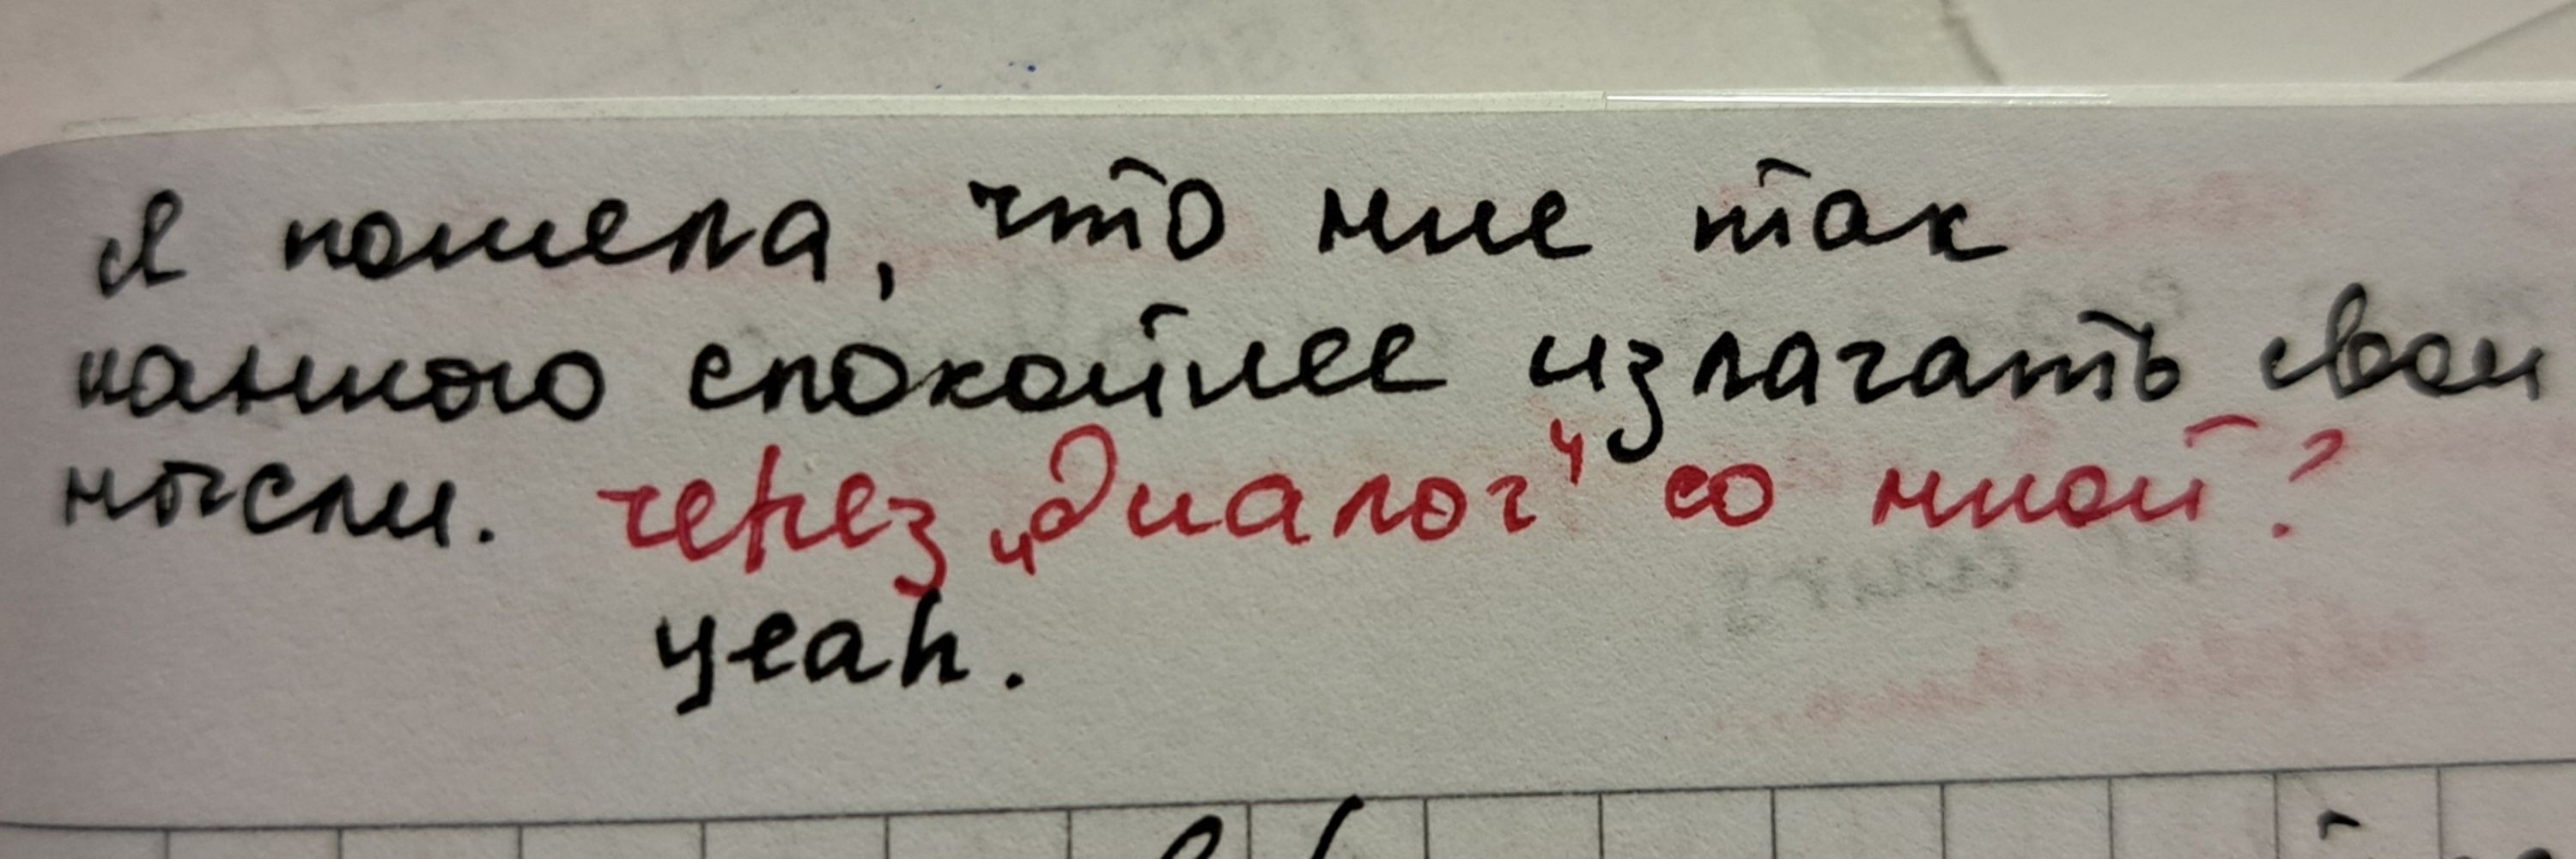 Я пошела, что мне так
намного спокойнее излагать свои
мысли. через „диалог“ со мной?
yeah.